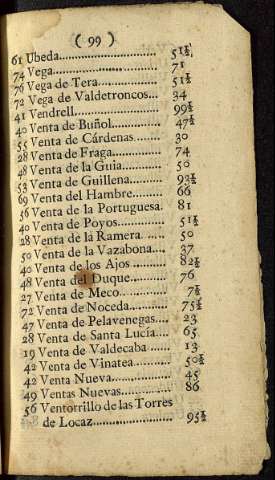 ( 99 )
61 Ubeda........................ 51½
74 Vega......................... 71
76 Vega de Tera............. 51½
72 Vega de Valdetroncos... 34
41 Vendrell.................... 99½
40 Venta de Buñol............ 47½
55 Venta de Cárdenas....... 30
28 Venta de Fraga............ 74
48 Venta de la Guia.......... 50
53 Venta de Guillena......... 93½
69 Venta del Hambre........ 66
56 Venta de la Portuguesa. 81
40 Venta de Poyos............ 51½
28 Venta de la Ramera...... 50
50 Venta de la Vazabona... 37
40 Venta de los Ajos ........ 82½
48 Venta del Duque.......... 76
27 Venta de Meco............ 7½
72 Venta de Noceda.......... 75½
47 Venta de Pelavenegas.... 23
28 Venta de Santa Lucía.... 65
19 Venta de Valdecaba ...... 13
42 Venta de Vinatea.......... 50½
42 Venta Nueva............... 45
49 Ventas Nuevas............. 86
56 Ventorrillo de las Torres
de Locaz.................... 95½